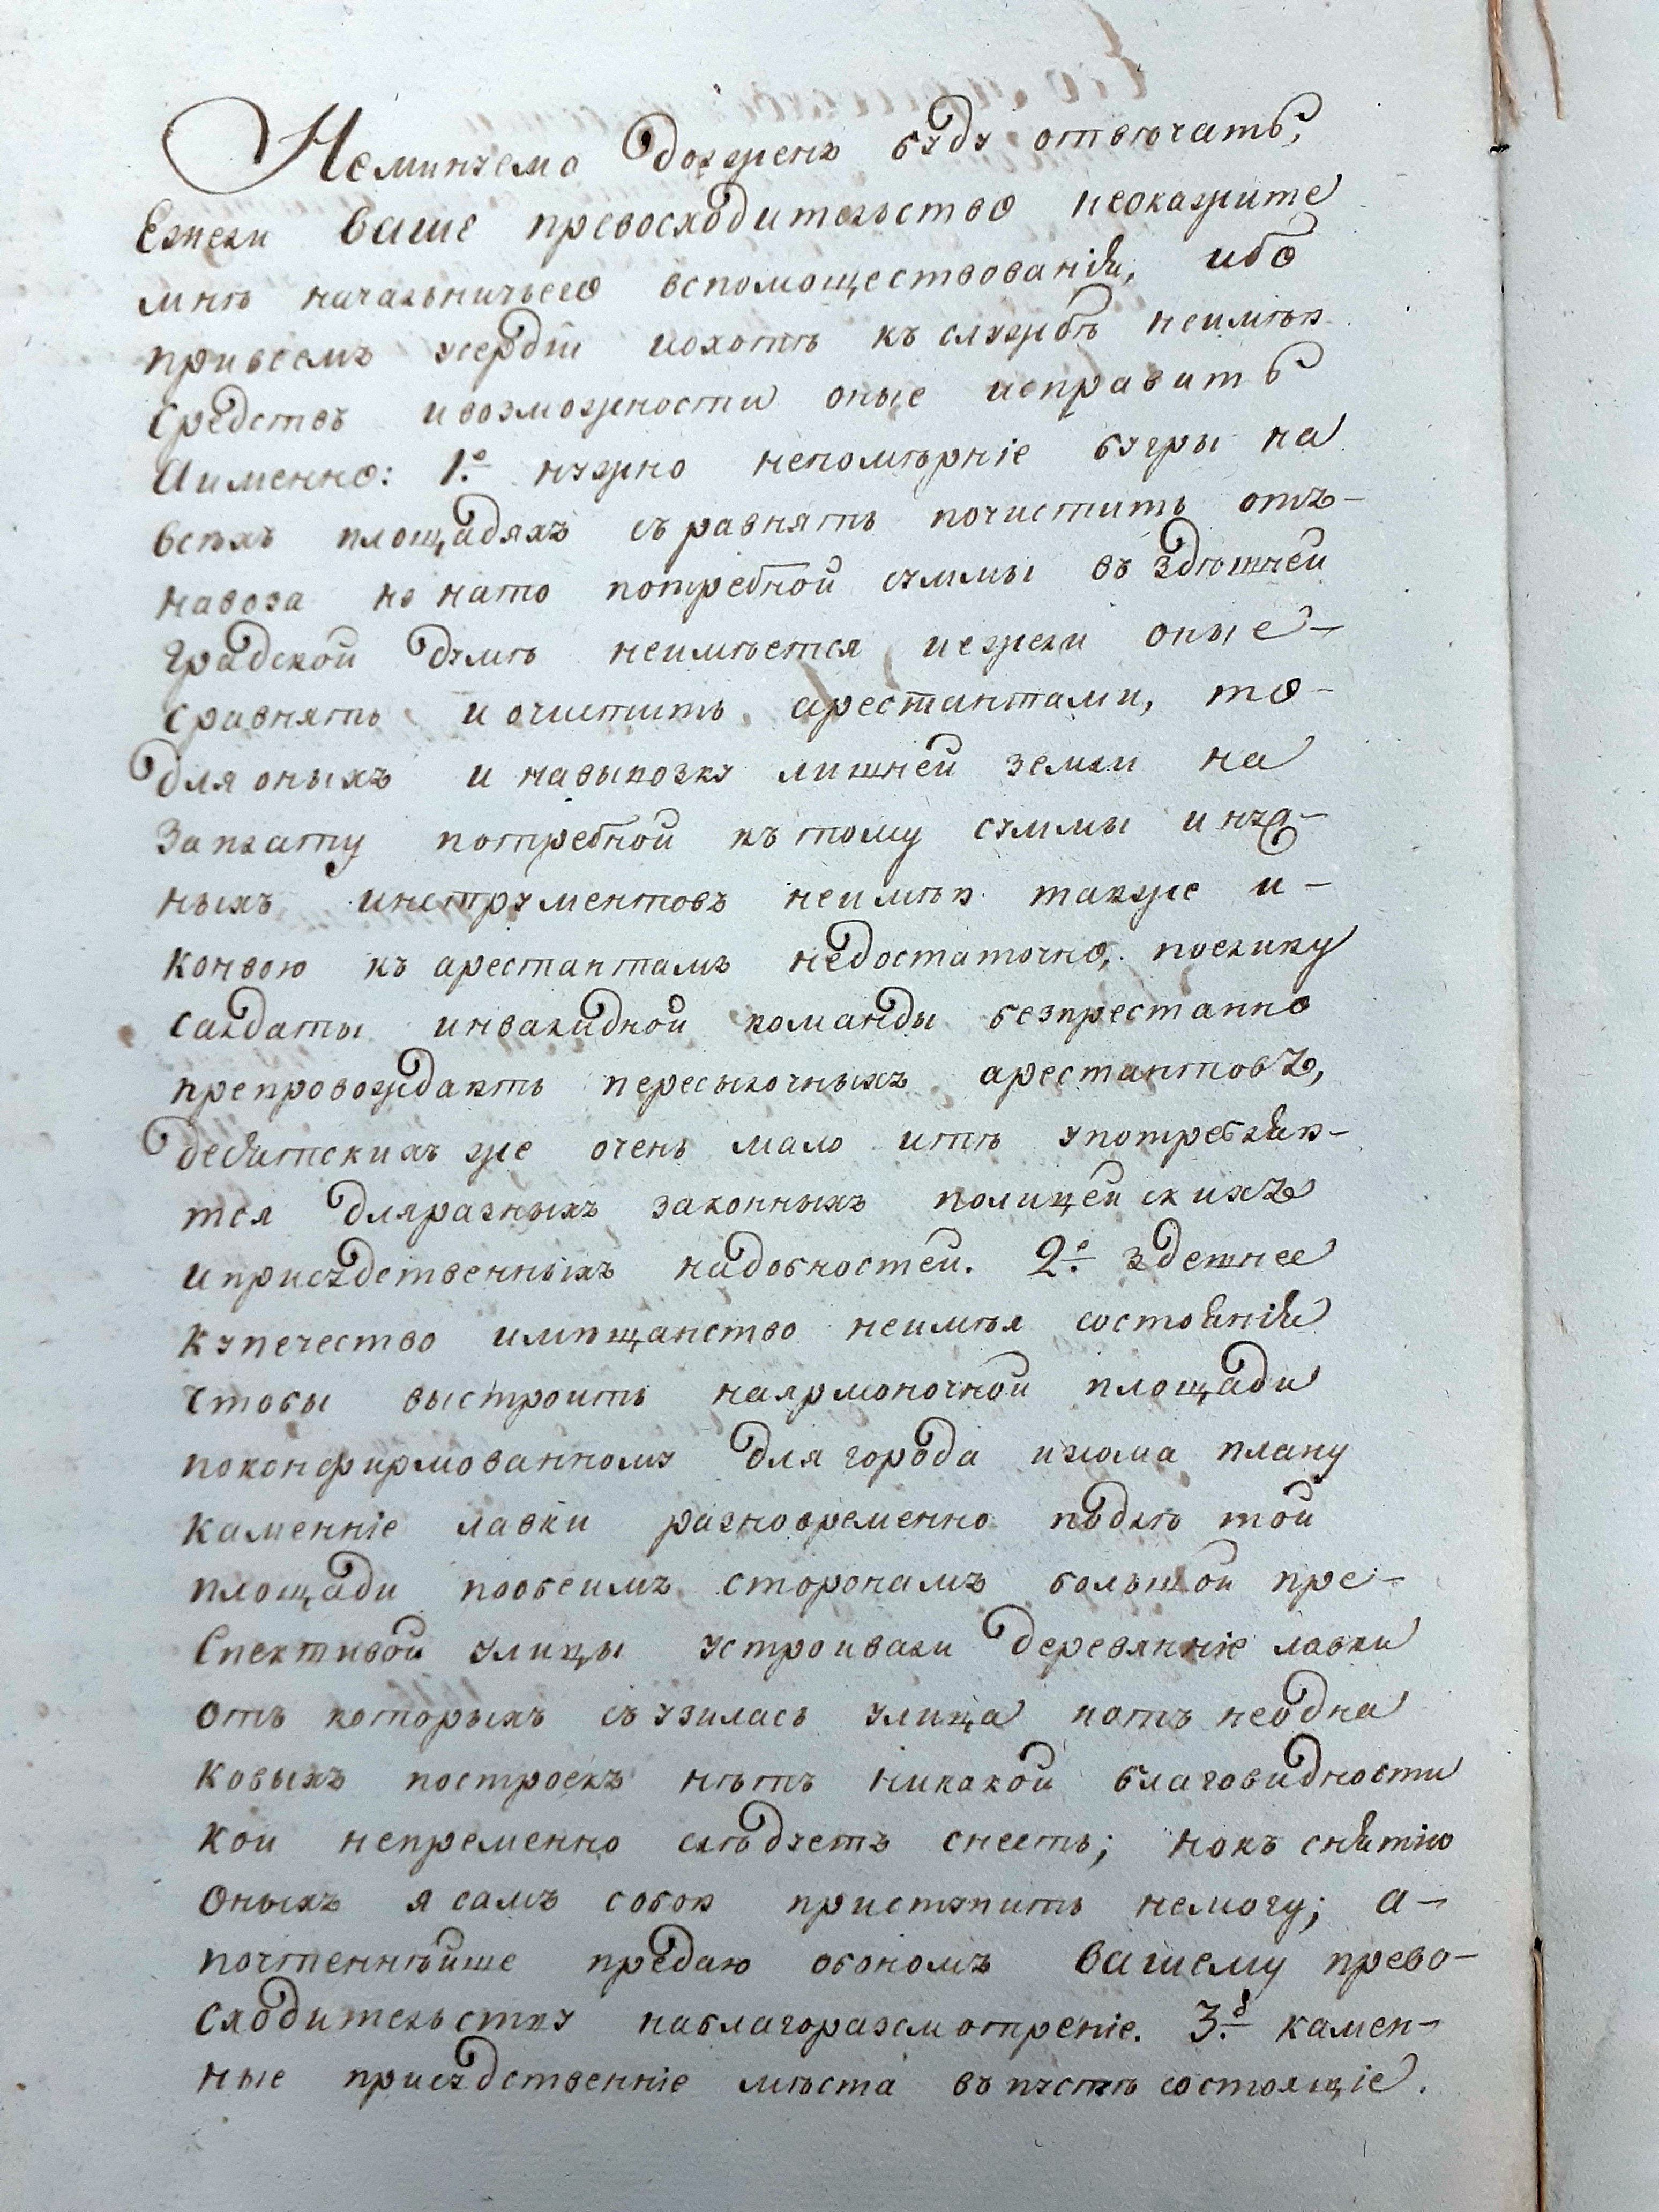 Неминуемо должен буду отвѣчать,
Ежели ваше превосходительство неокажите
мнѣ начальничьего вспомоществованія, ибо
привсемъ усердіи иохотѣ къ службѣ неимѣю
средствъ ивозможности оные исправить
Аименно: 1.е нужно непомѣрніе бугры на
всѣхъ площадяхъ съравнять почистить отъ-
навоза но нато потребной суммы въ здѣшней
градской думѣ неимѣется иежели оные-
сравнять и очистить арестантами, то-
для оныхъ и навывозку лишней земли на
заплату потребной къ тому суммы и нуж-
ныхъ инструментовъ неимѣю также и-
конвою къ арестантамъ недостаточно, поелику
салдаты инвалидной команды безпрестанно
препровождаютъ пересылочныхъ арестантовъ,
десятскихъ же очень мало итѣ употребляю-
тся дляразныхъ законныхъ полицейскихъ
иприсудственныхъ надобностей. 2.е здешнее
купечество имѣщанство неимѣя состоянія
чтобы выстроить наярмоночной площади
поконфирмованному для города изюма плану
каменніе лавки разновременно подлѣ той
площади пообеимъ сторонамъ большой пре-
спективой улицы устроивали деревянніе лавки
отъ которыхъ съузилась улица иотъ неодна
ковыхъ построекъ нѣтъ никакой благовидности
кои непременно слѣдуетъ снесть; нокъ снятію
оныхъ я самъ собою приступить немогу; а-
почтеннѣйше предаю обономъ вашему прево-
сходительству наблагоразсмотреніе. 3.е камен-
ные присудственніе мѣста въ пустѣ состоящіе.